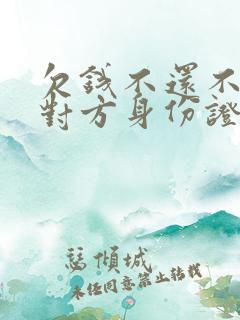 欠錢不還不
對方身份證
慧傾城
未經同意禁止轉載